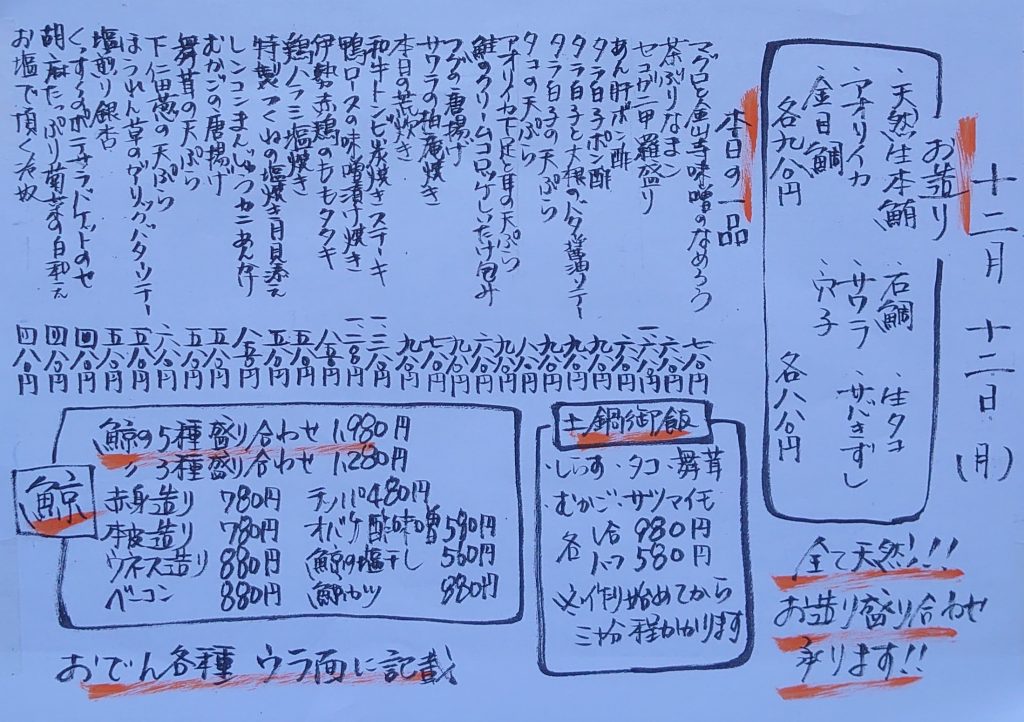 十二月十二日(月)
お造り
・天然生本鮪 ・石鯛 ・生タコ
・アオリイカ ・サワラ ・サバきずし
・金目鯛 ・穴子
各九八〇円 各八八〇円
全て天然!!!
お造り盛り合わせ
承ります!!
本日の一品
マグロと金山寺味噌のなめろう 七八〇円
茶ぶりなまこ 六八〇円
セコガニ甲羅盛り
あん肝ポン酢 六八〇円
タラ白子ポン酢 九八〇円
タラ白子と大根のバタ醤油ソテー 九八〇円
タラ白子の天ぷら 九八〇円
タコの天ぷら 八八〇円
アオリイカ下足と耳の天ぷら
鮭のクリームコロッケしいたけ包み
フグの唐揚げ 九八〇円
サワラの柚庵焼き
本日の荒炊き
和牛トンビ炭焼きステーキ
鴨ロースの味噌漬け焼き
伊勢赤鶏のももタタキ
鶏ハラミ塩焼き 五八〇円
特製つくねの塩焼き月見添え
レンコンまんじゅうカニあんかけ
むかごの唐揚げ 五八〇円
舞茸の天ぷら
下仁田葱の天ぷら 六八〇円
ほうれん草のガーリックバターソテー 五八〇円
塩煎り銀杏 五八〇円
くんすくのポテサラ 四八〇円
胡麻たっぷり菊菜の白和え 四八〇円
お塩で頂く冷奴 四八〇円
土鍋御飯
・しらす・タコ・舞茸
むかご・サツマイモ
各 1合 980円
ハーフ 580円
※作り始めてから
三十分程かかります
鯨
鯨の5種盛り合わせ 1,980円
〃 3種盛り合わせ 1,280円
赤身造り 780円 テッパ 480円
本皮造り 780円 オバケ酢味噌 580円
ウネス造り 880円 鯨の塩干し 560円
ベーコン 880円 鯨カツ 880円
おでん各種 ウラ面に記載